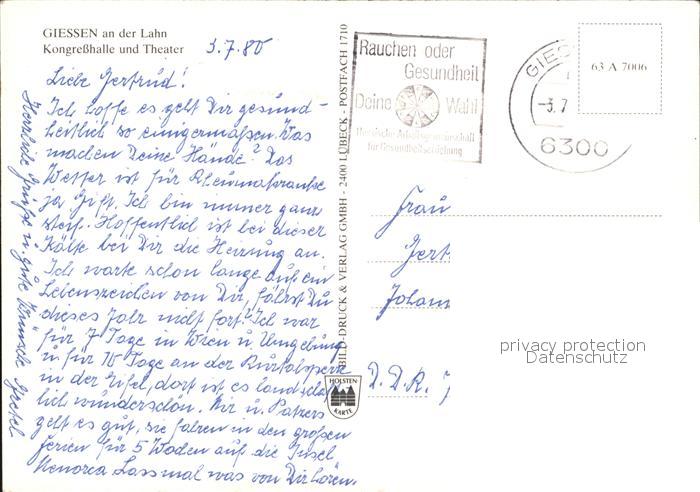 GIESSEN an der Lahn
Kongreßhalle und Theater
3.7.80
Liebe Gertrud!
Ich hoffe es geht Dir gesund-
heitlich so einigermaßen. Was
machen Deine Hände? Das
Wetter ist für Rheumakranke
ja Gift. Ich bin immer ganz
steif. Hoffentlich ist bei dieser
Kälte bei Dir die Heizung an.
Ich warte schon lange auf ein
Lebenszeichen von Dir, fährst Du
dieses Jahr nicht fort? Ich war
für 7 Tage in Wien u. Umgebung
u. für 10 Tage an der
in der Eifel, dort ist es landschaft-
lich wunderschön. Mir u.
geht es gut, sie fahren in den großen
Ferien für 5 Wochen auf die Insel
Menorca Lass mal was von Dir hören.
Herzliche Grüße u. gute Wünsche Gretel
BILD-DRUCK & VERLAG GMBH - 2400 LÜBECK - POSTFACH 1710
HOLSTEN
KARTE
Rauchen oder
Gesundheit
Deine Wahl
Hessische Arbeitsgemeinschaft
für Gesundheitserziehung
GIES
-3.7
6300
63 A 7006
Frau
Gert
Johan
D.D.R.
privacy protection
Datenschutz